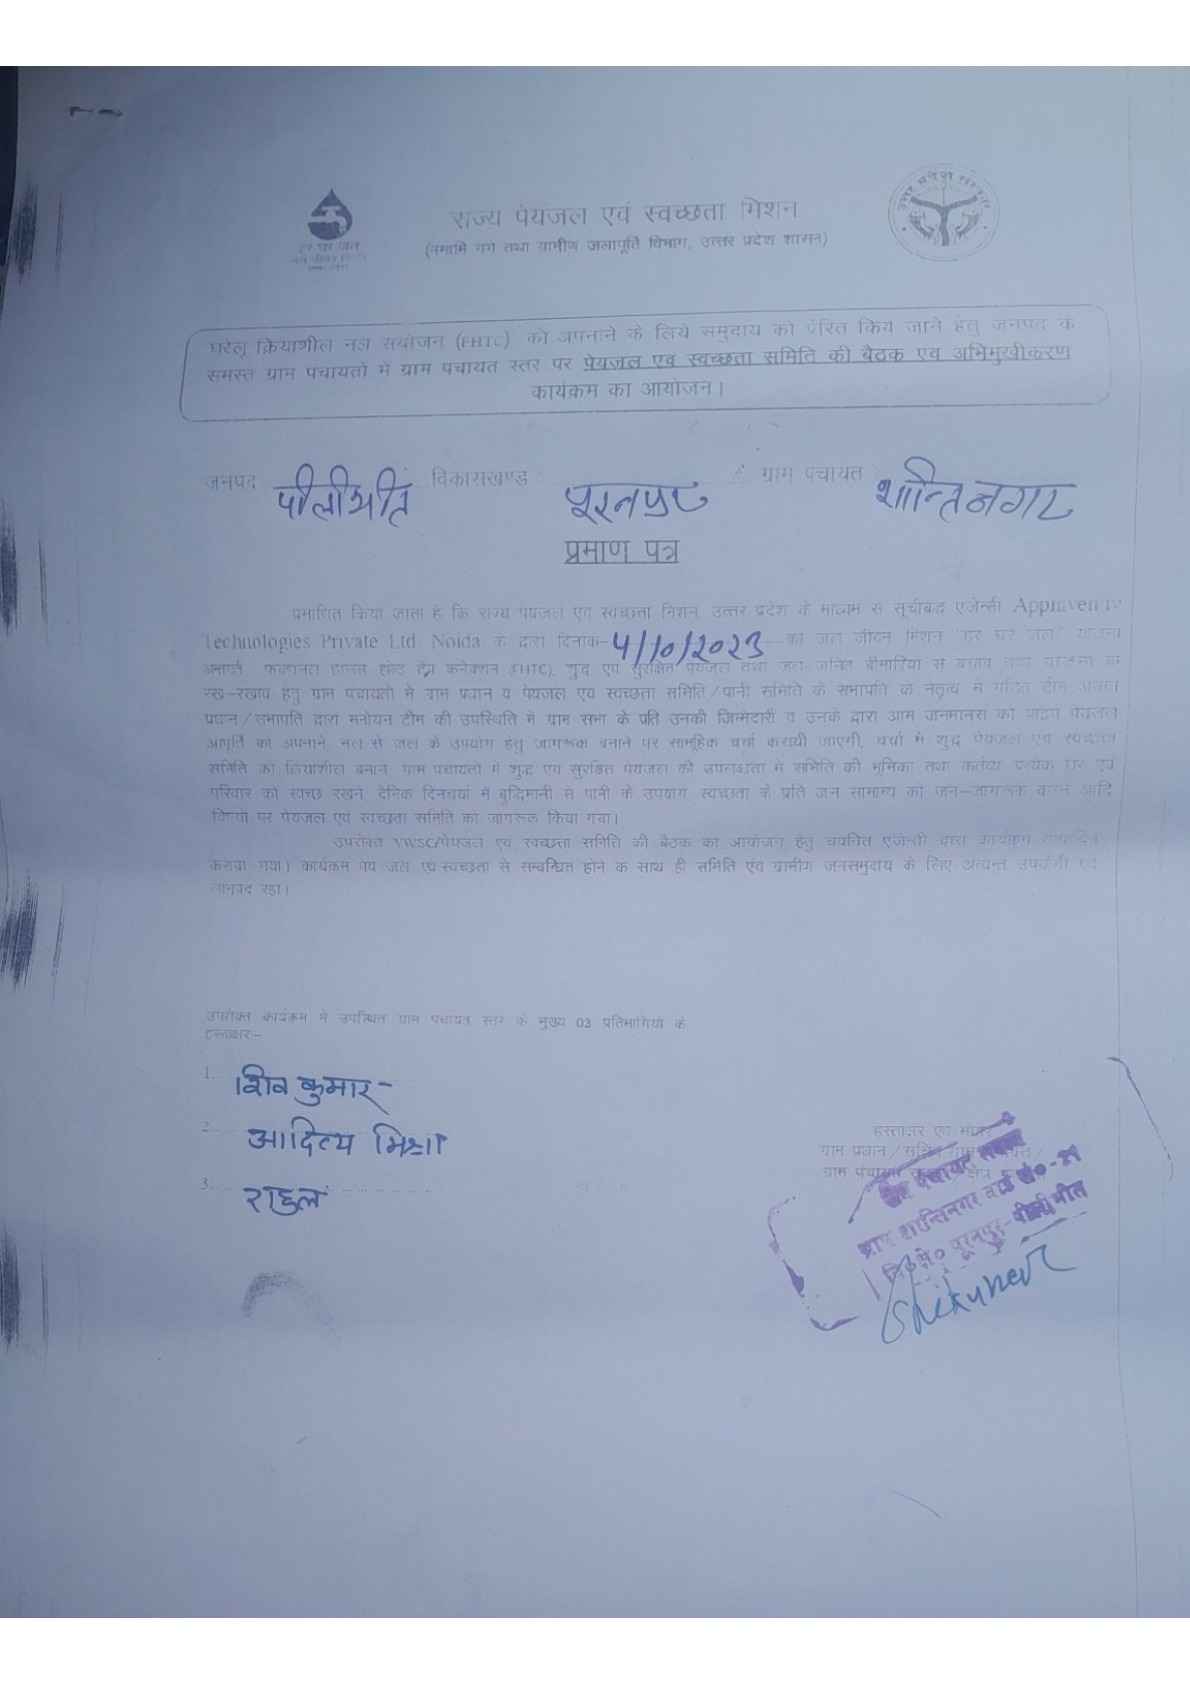 राज्य पेयजल एवं स्वच्छता मिशन
(नमामि गंगे तथा ग्रामीण जलापूर्ति विभाग, उत्तर प्रदेश शासन)
हर घर जल
घरेलू क्रियाशील नल संयोजन (FHTC) को अपनाने के लिये समुदाय को प्रेरित किये जाने हेतु जनपद के
समस्त ग्राम पंचायतों में ग्राम पंचायत स्तर पर पेयजल एवं स्वच्छता समिति की बैठक एवं अभिमुखीकरण
कार्यक्रम का आयोजन।
जनपद पीलीभीत विकासखण्ड पूरनपुर ग्राम पंचायत शान्तिनगर
प्रमाण पत्र
प्रमाणित किया जाता है कि राज्य पेयजल एवं स्वच्छता मिशन, उत्तर प्रदेश के माध्यम से सूचीबद्ध एजेन्सी
Technologies Private Ltd. Noida के द्वारा दिनांक- 4/10/2023 को जल जीवन मिशन "हर घर जल" योजना
कनेक्शन (FHTC), शुद्ध एवं सुरक्षित पेयजल तथा जल जनित बीमारियों से बचाव तथा
रख-रखाव हेतु ग्राम पंचायतों में ग्राम प्रधान व पेयजल एवं स्वच्छता समिति/पानी समिति के सभापति के नेतृत्व में गठित टीम
प्रधान/सभापति द्वारा मनोयन टीम की उपस्थिति में ग्राम सभा के प्रति उनकी जिम्मेदारी व उनके द्वारा आम जानमानस को पेयजल
आपूर्ति को अपनाने, नल से जल के उपयोग हेतु जागरूक बनाने पर सामूहिक चर्चा करायी जाएगी, चर्चा में शुद्ध पेयजल एवं स्वच्छता
समिति को क्रियाशील बनाने, ग्राम पंचायतों में शुद्ध एवं सुरक्षित पेयजल की उपलब्धता में समिति की भूमिका तथा कर्तव्य प्रत्येक घर एवं
परिवार को स्वच्छ रखने, दैनिक दिनचर्या में बुद्धिमानी से पानी के उपयोग, स्वच्छता के प्रति जन सामान्य को जन-जागरूक करने आदि
विषयों पर पेयजल एवं स्वच्छता समिति को जागरूक किया गया।
उपरोक्त VWSC/पेयजल एवं स्वच्छता समिति की बैठक का आयोजन हेतु चयनित एजेन्सी द्वारा कार्यक्रम
कराया गया। कार्यक्रम पेय जल एवं स्वच्छता से सम्बन्धित होने के साथ ही समिति एवं ग्रामीण जनसमुदाय के लिए अत्यन्त उपयोगी एवं
लाभप्रद रहा।
उपरोक्त कार्यक्रम में उपस्थित ग्राम पंचायत स्तर के मुख्य 03 प्रतिभागियों के
हस्ताक्षर-
1. शिव कुमार-
2. आदित्य मिश्रा
3. राहुल
हस्ताक्षर एवं मोहर
ग्राम प्रधान/सचिव ग्राम पंचायत/
ग्राम पंचायत क्षेत्र
पंचायत सदस्य
ग्राम शान्तिनगर वार्ड सं०-
वि० क्षे० पूरनपुर-पीलीभीत